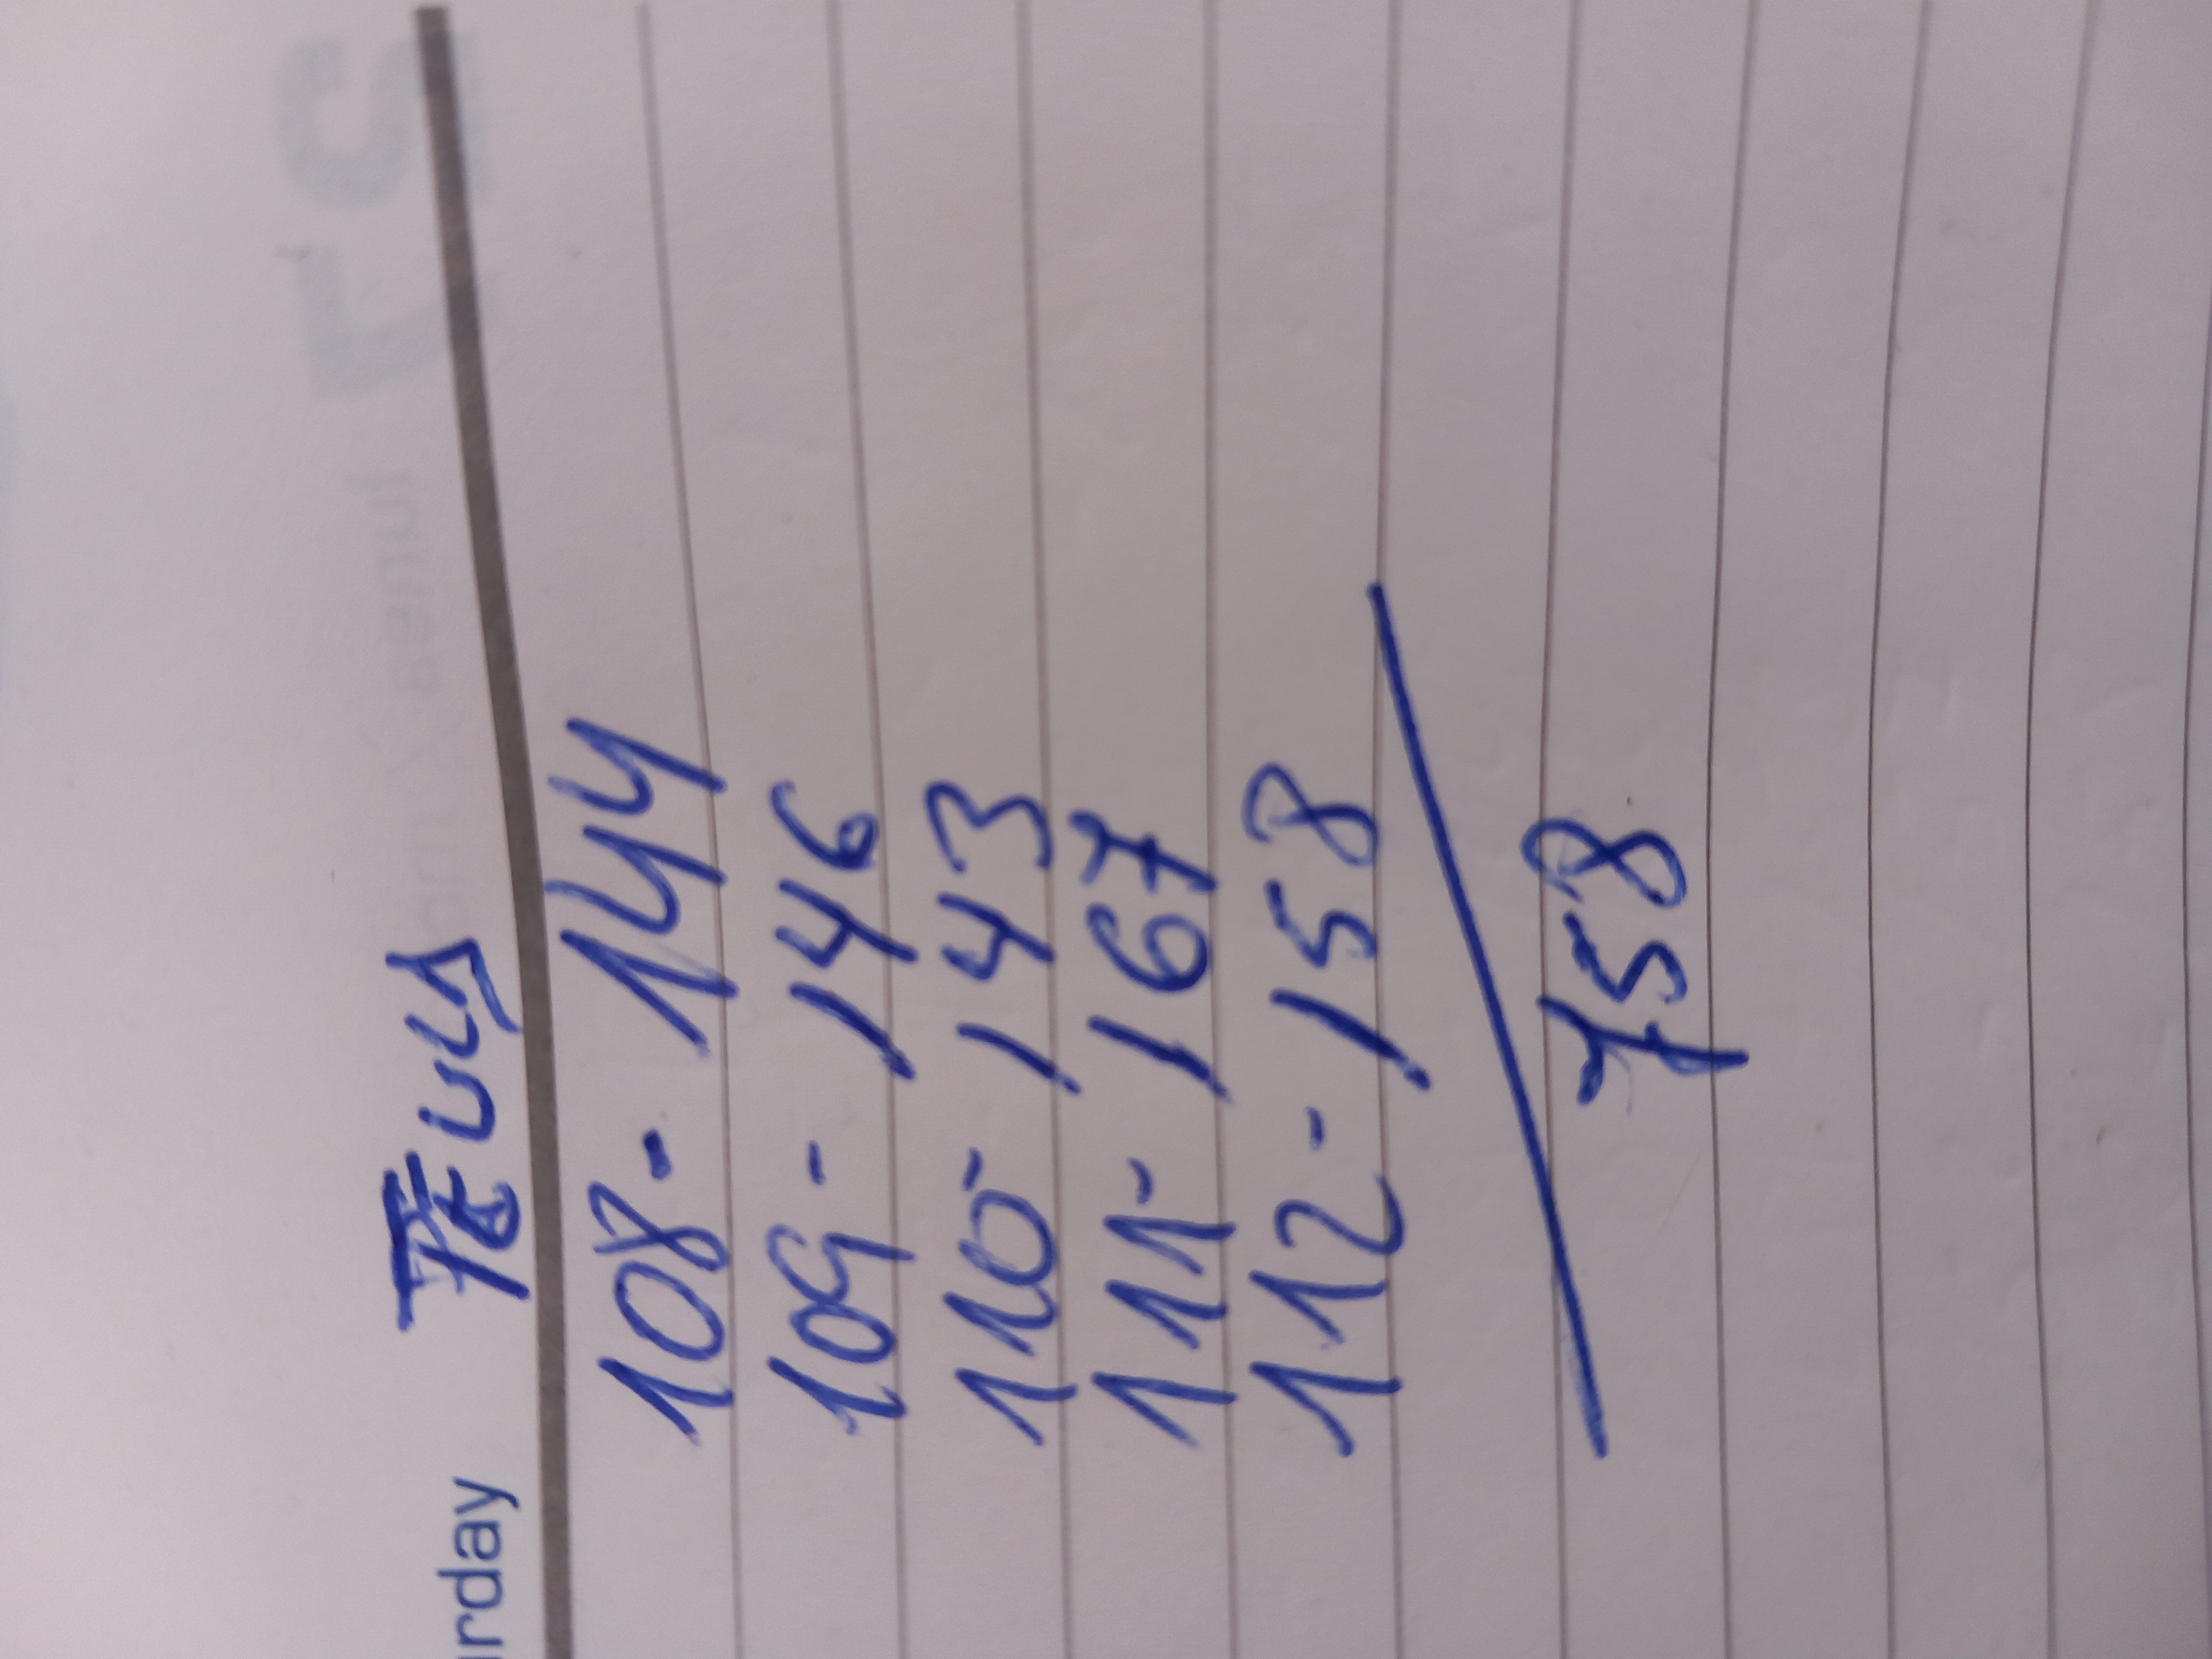 urday
108- 144
109- 146
110- 143
111- 167
112- 158
758